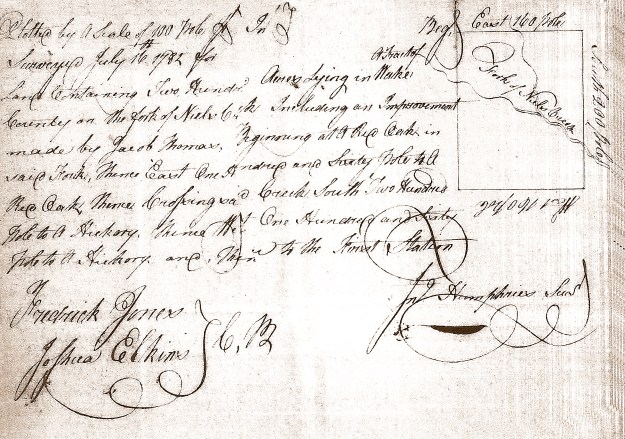 Plotted by A Scale of 100 Pole Pr In
Surveyed July 16th 1782 for
A Tract of
Land Containing Two Hundd. Acres Lying in Wake
County on the fork of Niels Crk Including an Improvement
made by Jacob Thomas. Beginning at A Red Oak in
said Fork, Thence East One Hundred and Sixty Pole to A
Red Oak, Thence Crossing sad Creek South Two Hundred
Pole to A Hickory, Thence West One Hundred and Sixty
Pole to A Hickory and Then to the First Station
Jno Humphries Survr
Fredrick Jones
Joshua Elkins
C, B
Beg
East 160 Pole
Fork of Niels Creek
South 200 Pole
West 160 Pole